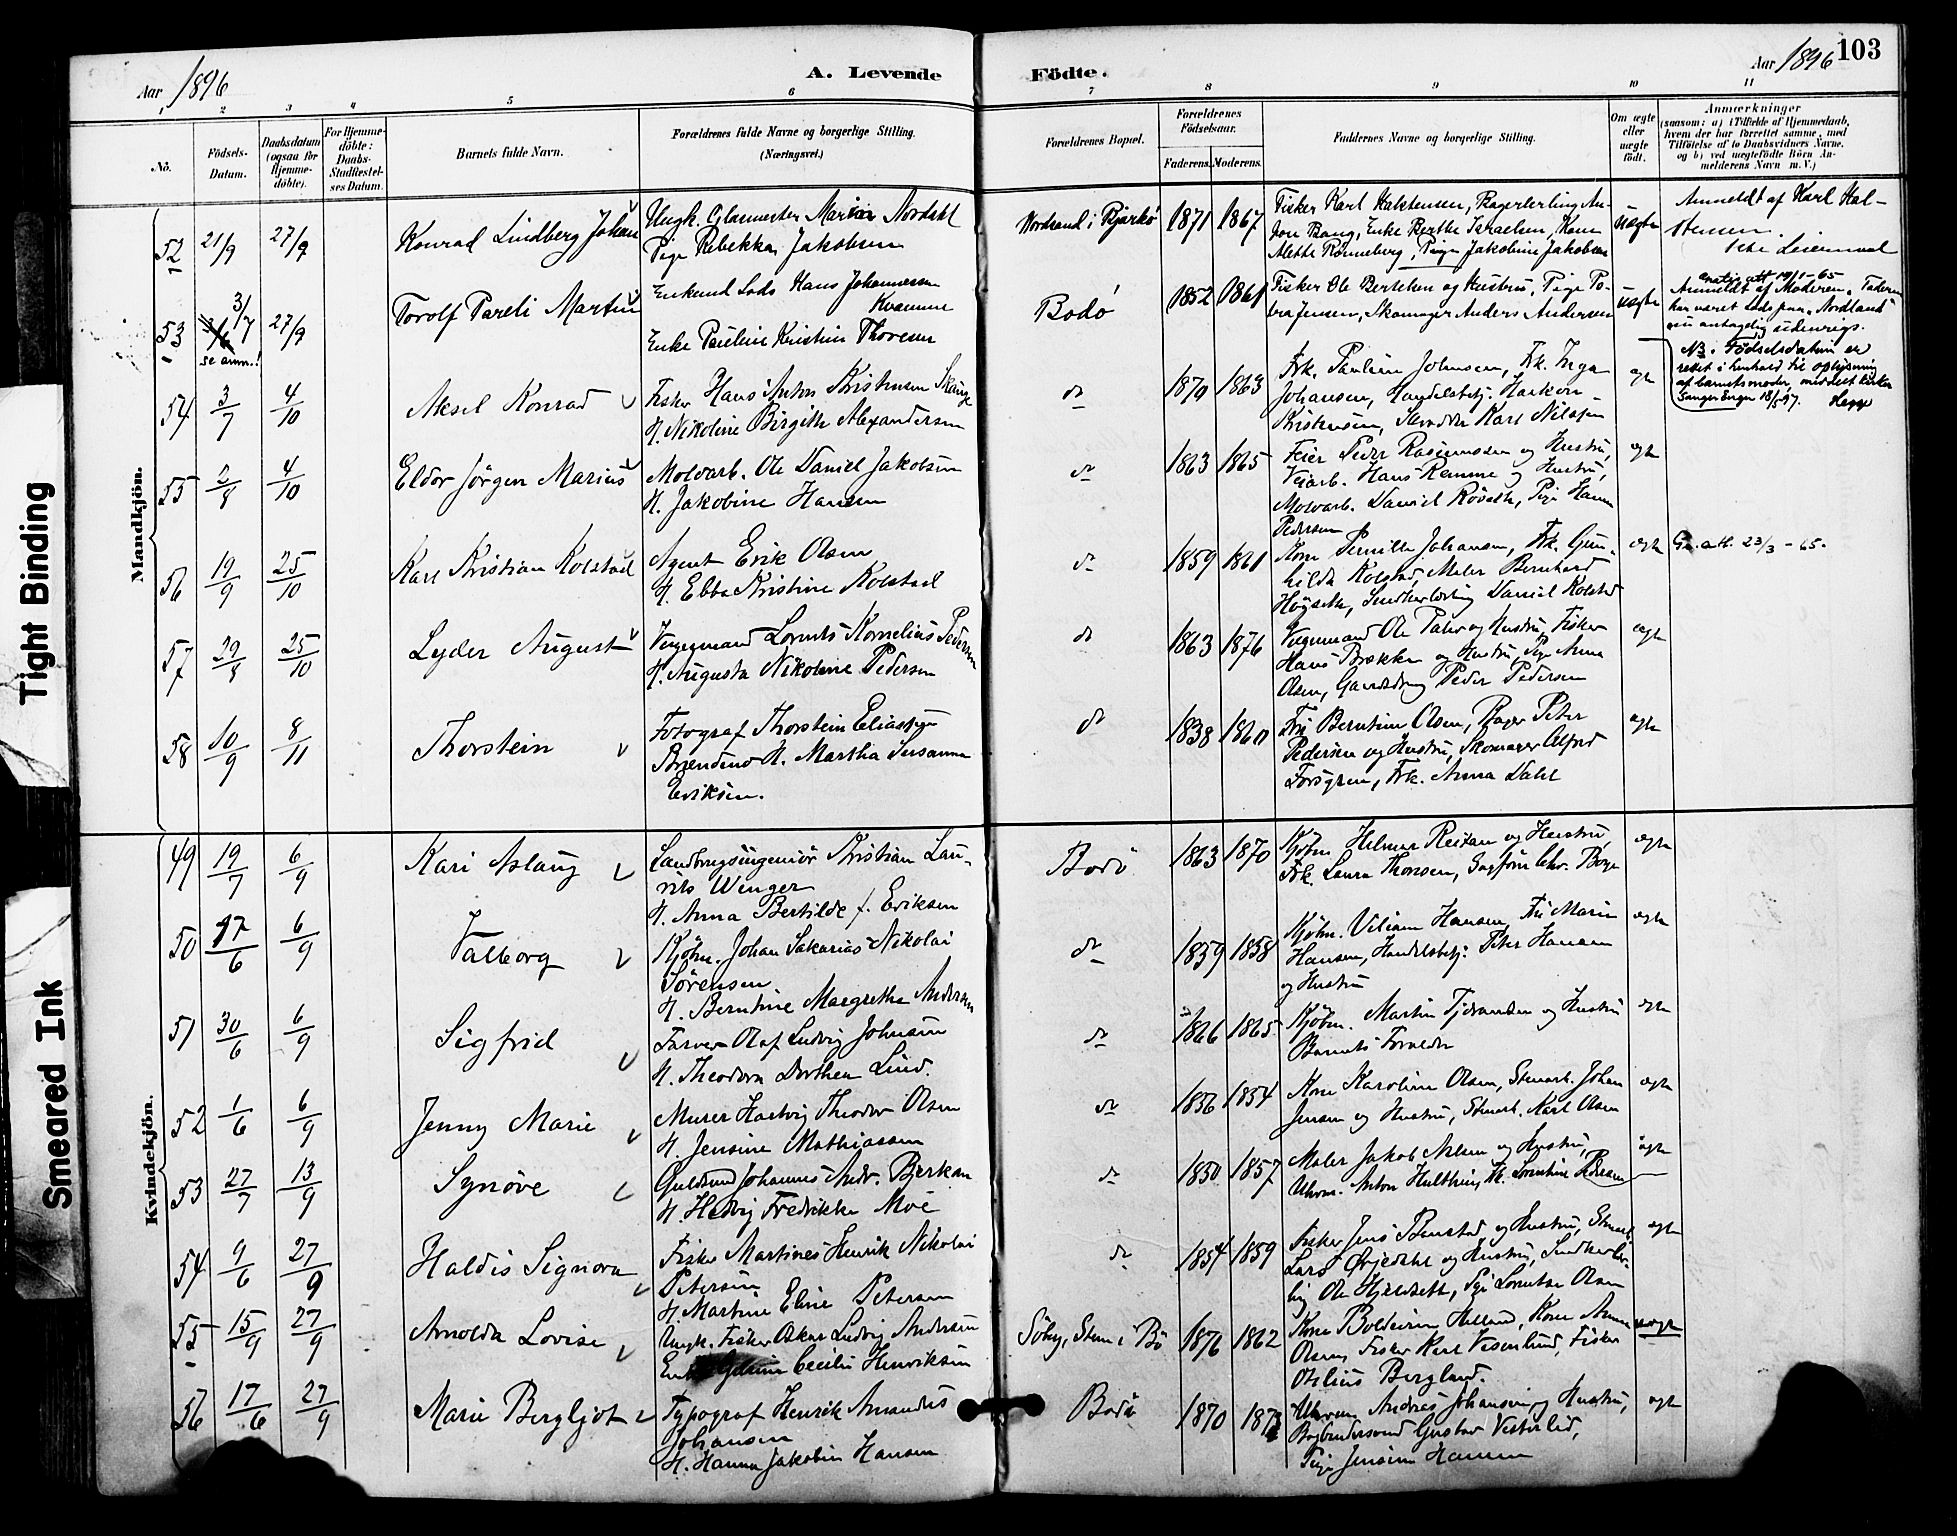 103
Aar 1896
A. Levende
Födte.
Aar 1896
1 2 3 4 5 6 7 8 9 10 11
No.
Födsels-
Datum.
Daabsdatum
(ogsaa for
Hjemme-
döbte).
For Hjemme-
döbte:
Daabs-
Stadfestel-
ses Datum.
Barnets fulde Navn.
Forældrenes fulde Navne og borgerlige Stilling.
(Næringsvei.)
Forældrenes Bopæl.
Forældrenes
Födselsaar.
Faderens. Moderens.
Faddernes Navne og borgerlige Stilling.
Om ægte
eller
uægte
födt.
Anmærkninger
(saasom: a) i Tilfælde af Hjemmedaab,
hvem der har forrettet samme, med
Tilföielse af to Daabsvidners Navne,
og b) ved uægtefödte Börn An-
melderens Navn m. V.)
Mandkjön.
52 21/9 27/9
Konrad Lindberg Johan
Ungk. Glarmester Marius Nordahl
Pige Rebekka Jakobsen
Nordsand i Bjarkö
1871 1867
Fisker Karl Halstensen,
Enke Berthe Israelsen, Kone
Alette Rönneberg, Pige Jakobine Jakobsen
uægte
Anmeldt af Karl Hal-
stensen.
53 3/7
se anm.! 27/9
Torolf Pareli Martin
Enkemd Lods Hans Johannessen
Kvamme
Enke Pauline Kristine Thoresen
Bodö
1852 1861
Fisker Ole Bertelsen og Hustru, Pige To-
bra Jensen, Skomager Anders Andersen
uægte
att 19/1-65
Anmeldt af Moderen. Faderen
har været Lods paa "Nordland"
nu antagelig udenrigs.
NB. Födselsdatum er
rettet i henhold til oplysning
af barnets moder, meddelt kirke
sanger Enger 18/5 97.
54 3/7 4/10
Aksel Konrad
Fisker Hans Anton Kristensen Skauge
H. Nikoline Birgithe Alexandersen
do
1870 1863
Frk. Pauline Johnsen, Frk. Inga
Johansen, Handelsbetj. Haakon
Kristensen, Karl Nilssen
ægte
55 2/8 4/10
Eldor Jörgen Marius
Moloarb. Ole Daniel Jakobsen
H. Jakobine Hansen
do
1863 1865
Feier Peder Rasmussen og Hustru,
Veiarb. Hans Remme og Hustru,
Moloarb. Daniel Pige Hanna
Pedersen
ægte
56 19/9 25/10
Karl Kristian Kolstad
Agent Erik Olsen
H. Ebba Kristine Kolstad
do
1859 1861
Kone Pernille Johansen, Frk. Gun-
hilda Kolstad, Maler Bernhard
Högseth, Snedkerlærling Daniel Kolstad
ægte
att. 23/3 - 65.
57 29/8 25/10
Lyder August
Vognmand Lorents Kornelius Pedersen
H. Augusta Nikoline Pedersen
do
1863 1876
Vognmand Ole og Hustru, Fisker
Hans Brekke og Hustru, Pige Anna
Olsen, Gaardsdreng Peder Pedersen
ægte
58 10/9 8/11
Thorstein
Fotograf Thorstein Eliassen
Brændmo H. Martha Susanna
Eriksen.
do
1838 1860
Fru Berntine Olsen, Bager Peter
Pedersen og Hustru, Skomager Alfred
Forsgren, Frk. Anna Dahl
ægte
Kvindekjön.
49 19/7 6/9
Kari Aslaug
Landbrugsingeniör Kristian Lau-
rits Wenger
H. Anna Bertilde f. Eriksen
Bodö
1863 1870
Kjöbm. Helmer og Hustru,
Frk. Laura Thonsen, Chr. Borge
ægte
50 17/6 6/9
Valborg
Kjöbm. Johan Sakarias Nikolai
Sörensen
H. Berntine Margrethe Andersen
do
1859 1858
Kjöbm. Viliam Hansen, Fru Marie
Hansen, Handelsbetj. Peter Hansen
og Hustru
ægte
51 30/6 6/9
Sigfrid
Farver Olaf Ludvig Johnsen
H. Theodora Dorthea Lind.
do
1866 1865
Kjöbm. Martin og Hustru
Barnets Forældre
ægte
52 1/6 6/9
Jenny Marie
Murer Hartvig Theodor Olsen
H. Jensine Mathiassen
do
1856 1854
Kone Karoline Olsen, Stuearb. Johan
Jensen og Hustru, Stuearb. Karl Olsen
ægte
53 27/7 13/9
Synöve
Guldsmed Johannes Andr. Berksen
H. Hedvig Fredrikke Moe
do
1850 1857
Maler Jakob Nilsen og Hustru,
Uhrm. Anton Hulthin, Frk. Lorentine
ægte
54 9/6 27/9
Haldis Signora
Fisker Martines Henrik Nikolai
Petersen
H. Martine Eline Petersen
do
1854 1859
Fisker Jens og Hustru,
Lars og Hustru, Snedkerlær-
ling Ole Hjeldseth, Pige Lorentse Olsen
ægte
55 15/9 27/9
Arnolda Lovise
Ungk. Fisker Oskar Ludvig Andersen
Cecilie Henriksen
Söby, Steen i Bö
1876 1862
Kone Helland, Kone Anna
Olsen, Fisker Karl Fisker
Otelius Bergland.
uægte
56 17/6 27/9
Marie Bergljot
Typograf Henrik Amandus
Johansen
H. Hanna Jakobine Hansen
Bodö
1870 1873
Uhrm. Andreas Johansen og Hustru,
Bogbindersvend Gustav Vesterlid,
Pige Jensine Hansen
ægte
Tight Binding
Smeared Ink